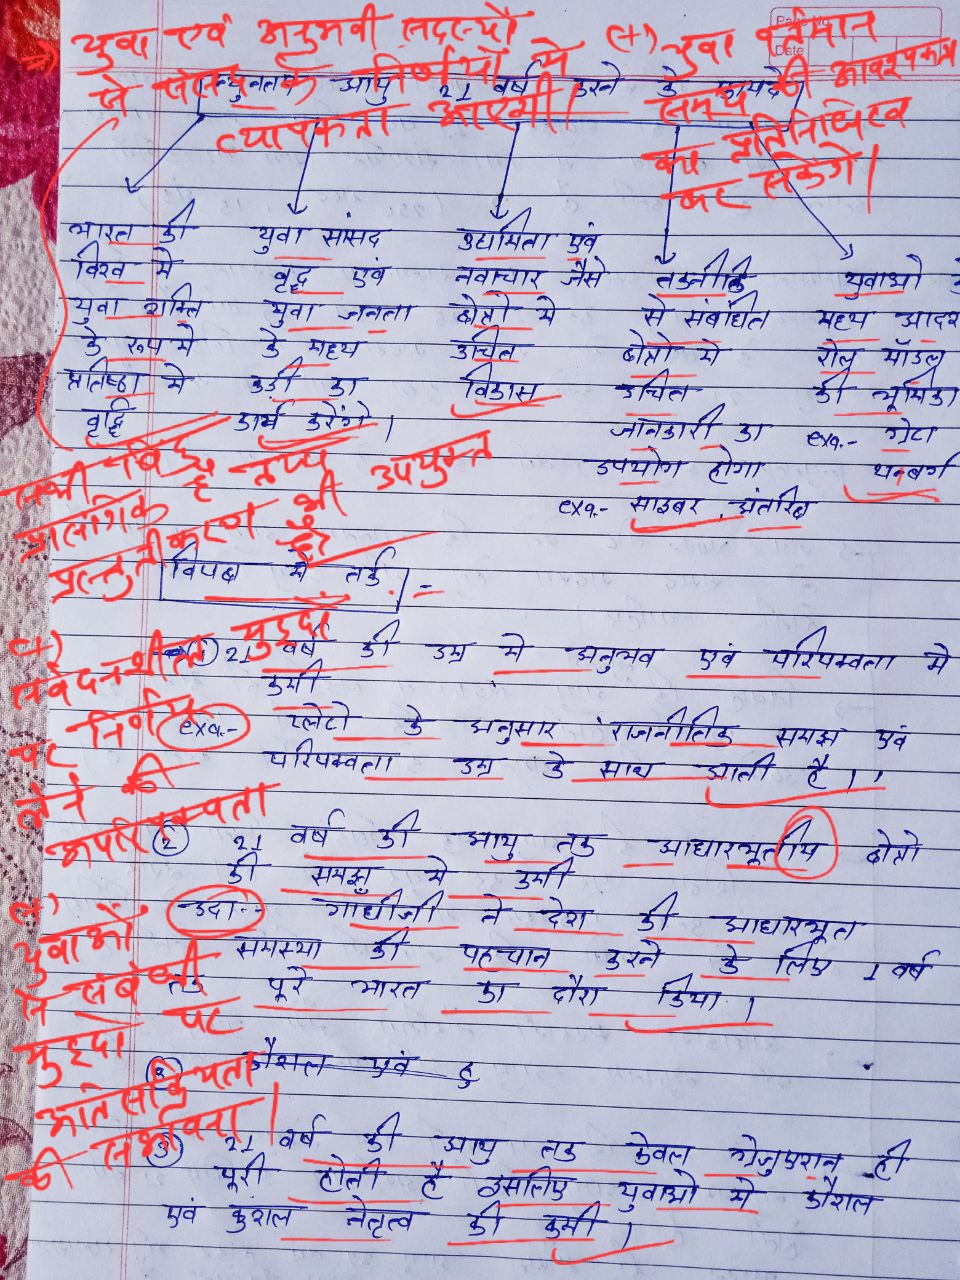 Page No.
Date
→ युवा एवं अनुभवी सदस्यों
से लोकतांत्रिक निर्णयों में
व्यापकता आएगी।
(+) युवा वर्तमान
समय की आवश्यकता
का प्रतिनिधित्व
कर सकेंगे।
न्युनतम आयु 21 वर्ष करने के फायदे
भारत की
विश्व में
युवा शक्ति
के रूप में
प्रतिष्ठा में
वृद्धि
युवा सांसद
वृद्ध एवं
युवा जनता
के मध्य
कड़ी का
कार्य करेंगे।
उद्यमिता एवं
नवाचार जैसे
क्षेत्रों में
उचित
विकास
तकनीकि
से संबंधित
क्षेत्रों में
उचित
जानकारी का
उपयोग होगा
exa.- साइबर, अंतरिक्ष
युवाओं के
मध्य आदर्श
रोल मॉडल
की भूमिका
exa.- ग्रेटा
थनबर्ग
सभी बिंदु तथ्य
प्रासंगिक
प्रस्तुतीकरण भी उपयुक्त
है।
विपक्ष में तर्क -
① 21 वर्ष की उम्र में अनुभव एवं परिपक्वता में
कमी
exa.- प्लेटो के अनुसार राजनीतिक समझ एवं
परिपक्वता उम्र के साथ आती है।
② 21 वर्ष की आयु तक आधारभूतीय क्षेत्रों
की समझ में कमी
उदा.- गांधीजी ने देश की आधारभूत
समस्या की पहचान करने के लिए 1 वर्ष
तक पूरे भारत का दौरा किया।
③ कौशल एवं कु
③ 21 वर्ष की आयु तक केवल ग्रेजुएशन ही
पूरी होती है इसलिए युवाओं में कौशल
एवं कुशल नेतृत्व की कमी।
(+)
संवेदनशील मुद्दों
पर निर्णय
लेने की
अपरिपक्वता
(+)
युवाओं
से संबंधी
मुद्दों पर
अति सक्रियता
की संभावना।